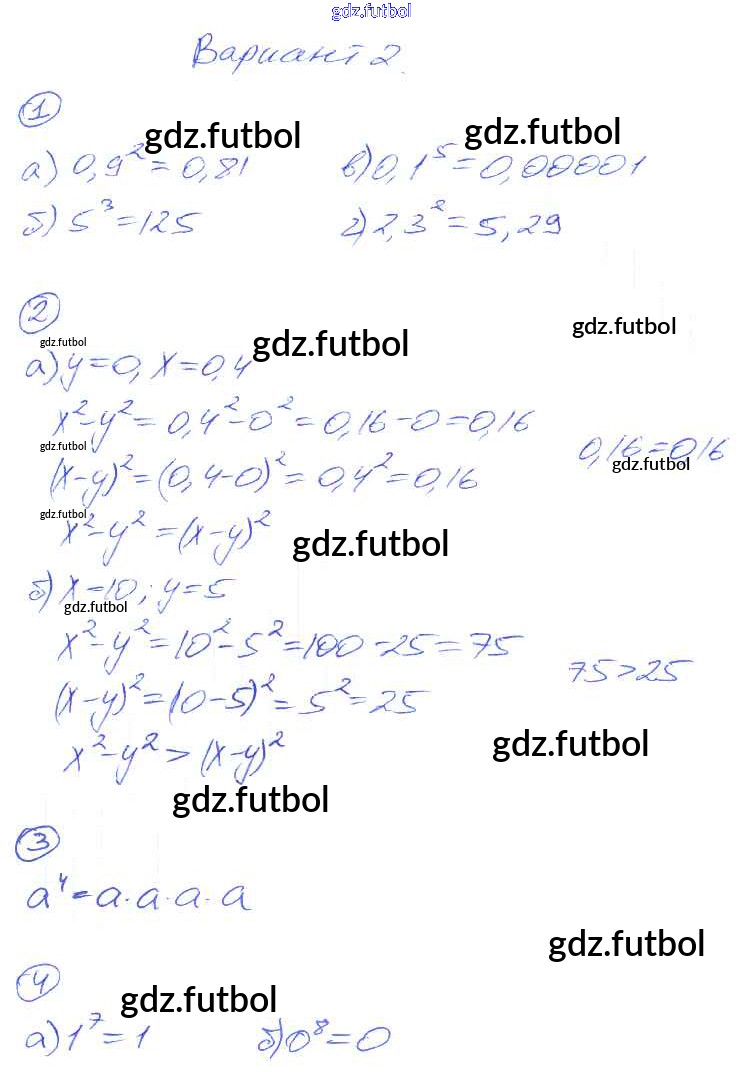 gdz.futbol
Вариант 2.
1
gdz.futbol gdz.futbol
а) 0,9² = 0,81 в) 0,1⁵ = 0,00001
б) 5³ = 125 г) 2,3² = 5,29
2
gdz.futbol gdz.futbol gdz.futbol
а) y = 0, x = 0,4
x² - y² = 0,4² - 0² = 0,16 - 0 = 0,16
gdz.futbol 0,16 = 0,16
gdz.futbol
(x - y)² = (0,4 - 0)² = 0,4² = 0,16
gdz.futbol
x² - y² = (x - y)²
gdz.futbol
б) x = 10; y = 5
gdz.futbol
x² - y² = 10² - 5² = 100 - 25 = 75
75 > 25
(x - y)² = (10 - 5)² = 5² = 25
x² - y² > (x - y)²
gdz.futbol
gdz.futbol
3
a⁴ = a · a · a · a
gdz.futbol
4
gdz.futbol
а) 1⁷ = 1 б) 0⁸ = 0